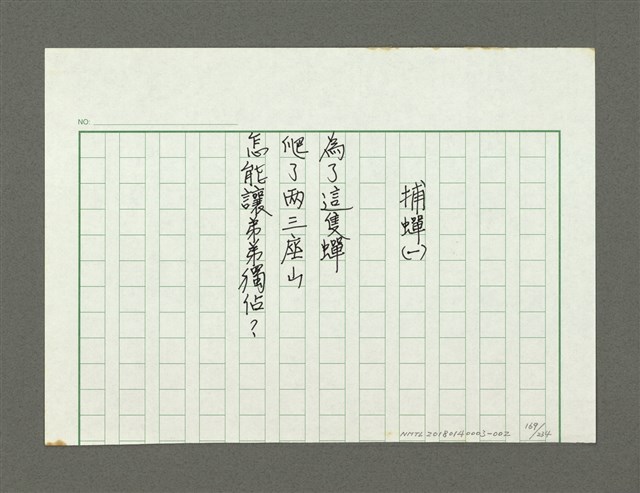 NO:
捕蟬(一)
為了這隻蟬
爬了兩三座山
怎能讓弟弟獨佔？
NMTL20180140003-002
169/234